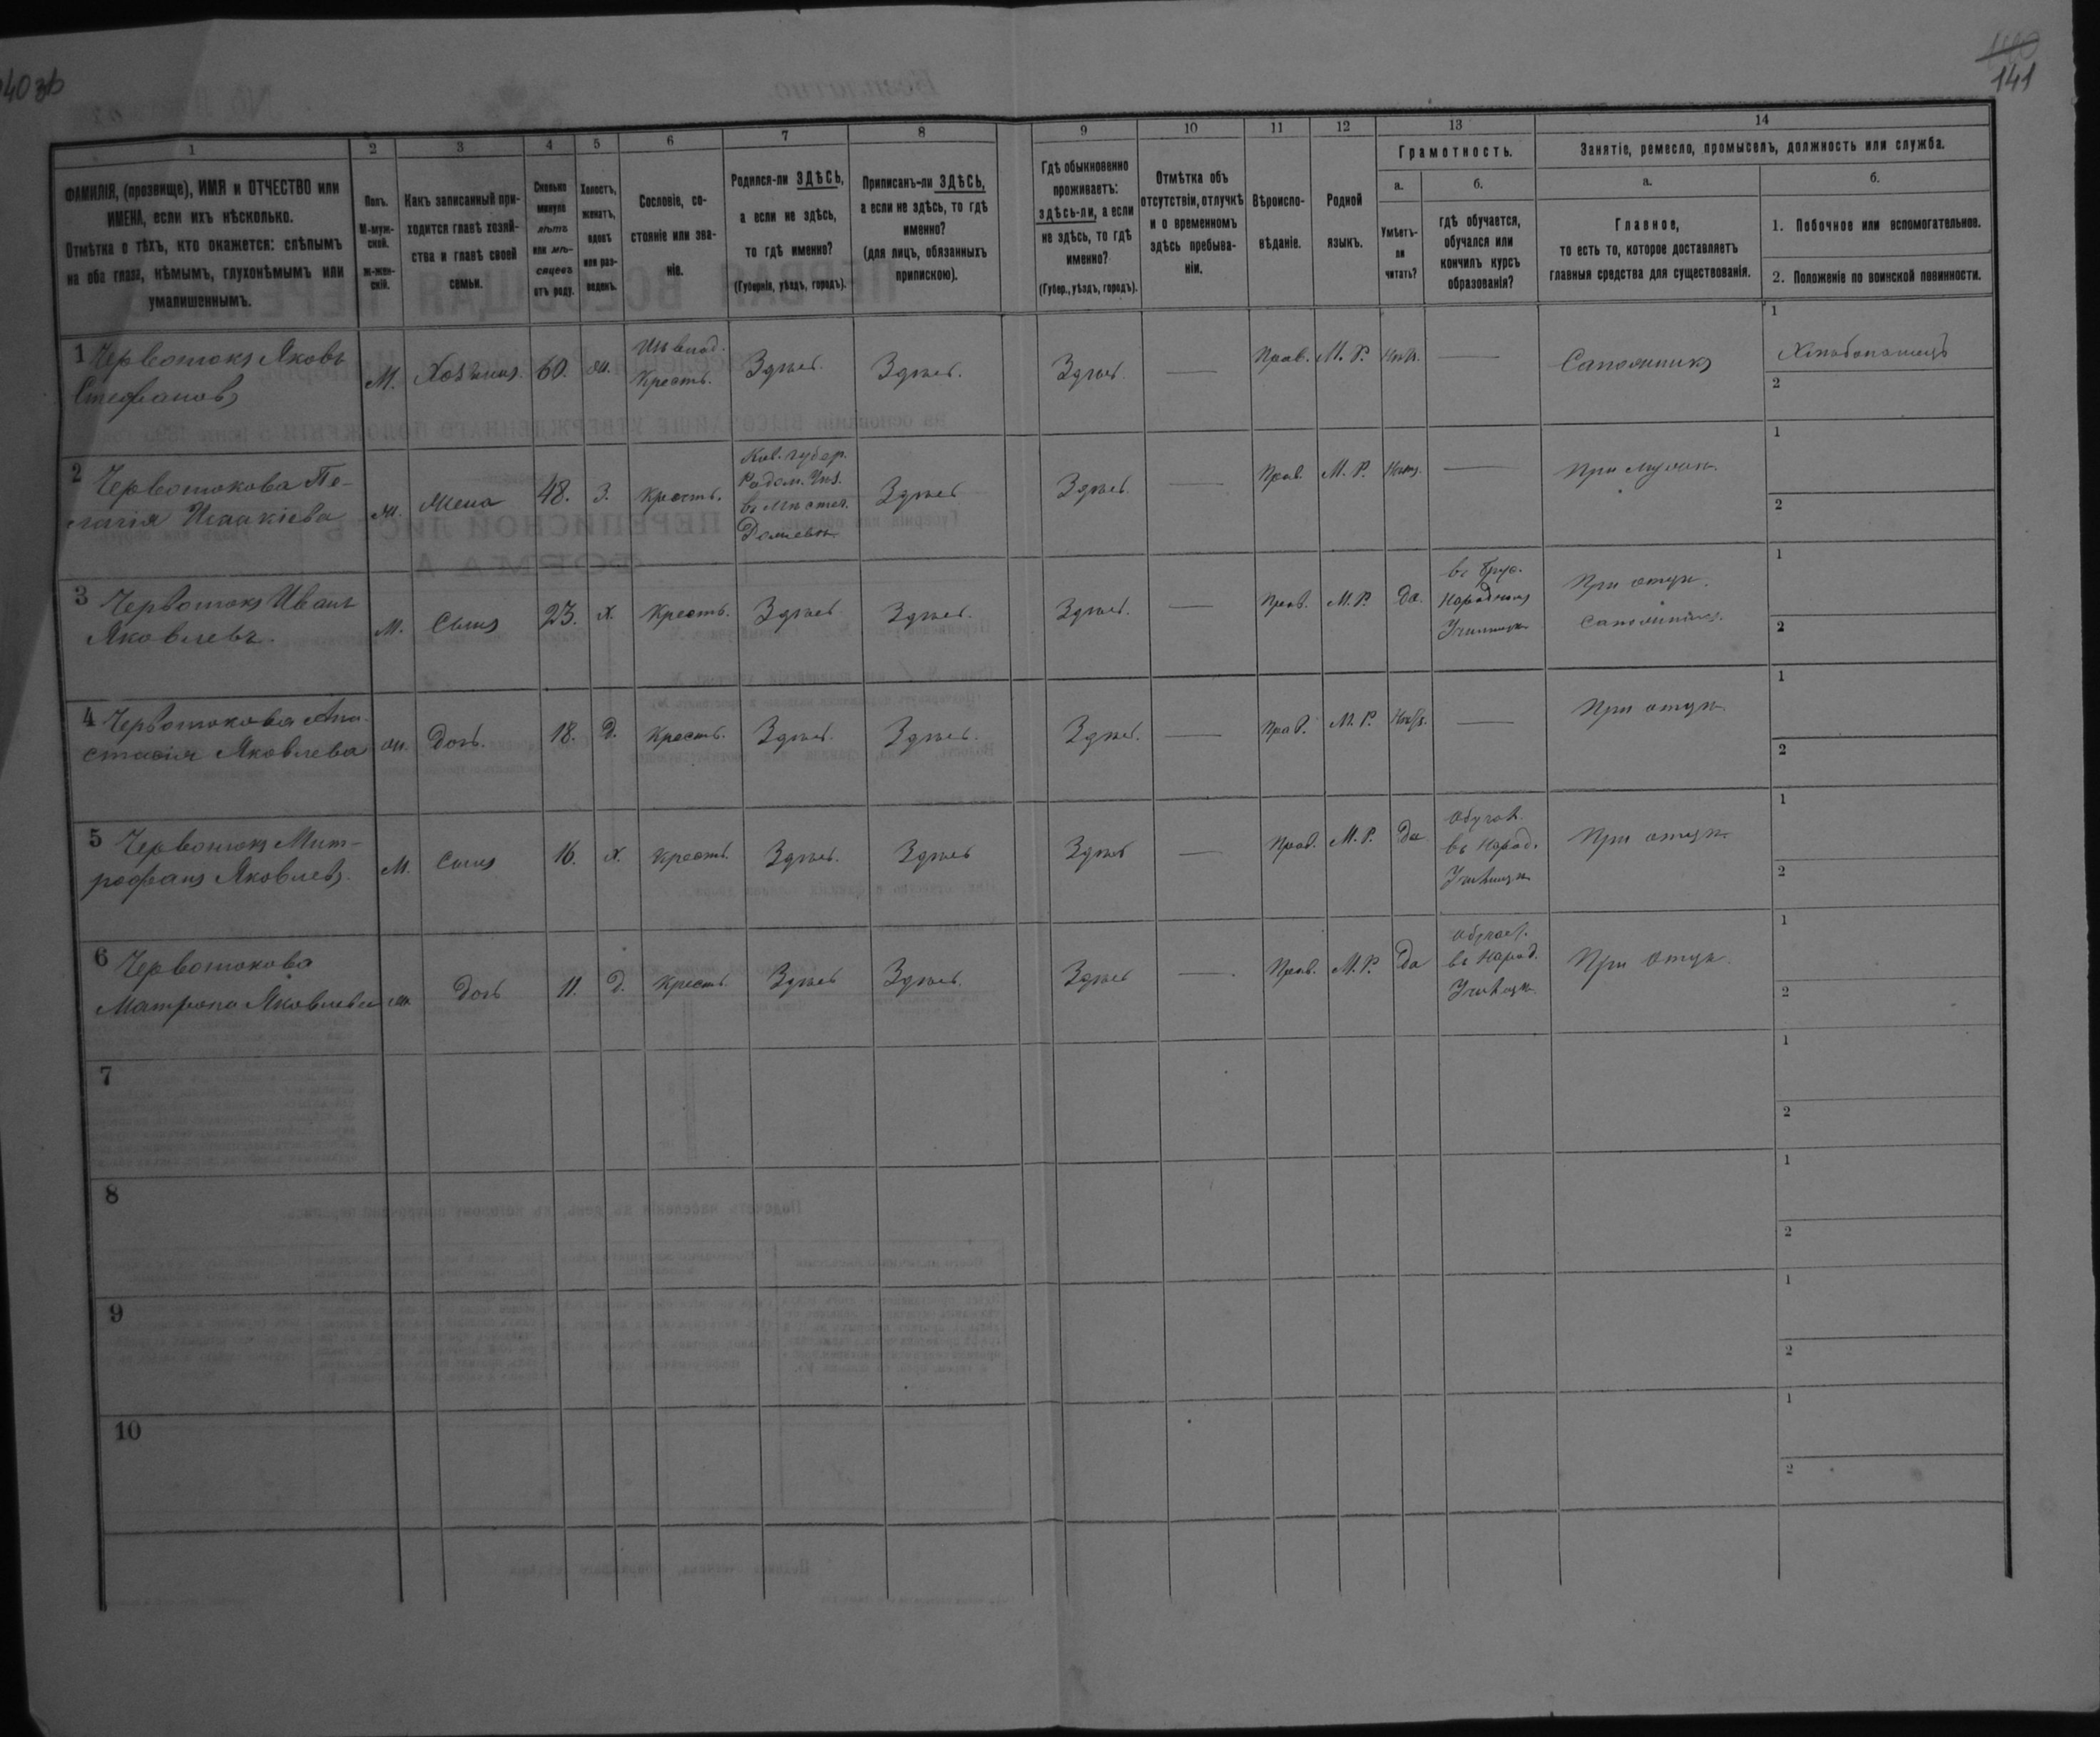 140 зв
140
141
1
2
3
4
5
6
7
8
9
10
11
12
13
14
ФАМИЛІЯ, (прозвище), ИМЯ и ОТЧЕСТВО или
ИМЕНА, если ихъ нѣсколько.
Отмѣтка о тѣхъ, кто окажется: слѣпымъ
на оба глаза, нѣмымъ, глухонѣмымъ или
умалишеннымъ.
Полъ.
М-муж-
ской.
ж-жен-
скій.
Какъ записанный при-
ходится главѣ хозяй-
ства и главѣ своей
семьи.
Сколько
минуло
лѣтъ
или мѣ-
сяцевъ
отъ роду.
Холостъ,
женатъ,
вдовъ
или раз-
веденъ.
Сословіе, со-
стояніе или зва-
ніе.
Родился-ли ЗДѢСЬ,
а если не здѣсь,
то гдѣ именно?
(Губернія, уѣздъ, городъ).
Приписанъ-ли ЗДѢСЬ,
а если не здѣсь, то гдѣ
именно?
(для лицъ, обязанныхъ
припискою).
Гдѣ обыкновенно
проживаетъ:
здѣсь-ли, а если
не здѣсь, то гдѣ
именно?
(Губер., уѣздъ, городъ).
Отмѣтка объ
отсутствіи, отлучкѣ
и о временномъ
здѣсь пребыва-
ніи.
Вѣроиспо-
вѣданіе.
Родной
языкъ.
Грамотность.
а.
Умѣетъ-
ли
читать?
б.
гдѣ обучается,
обучался или
кончилъ курсъ
образованія?
Занятіе, ремесло, промыселъ, должность или служба.
а.
Главное,
то есть то, которое доставляетъ
главныя средства для существованія.
б.
1. Побочное или вспомогательное.
2. Положеніе по воинской повинности.
1 Червотокъ Яковъ
Стефановъ
М.
Хозяинъ.
60.
ж.
Крестъ.
Здѣсь.
Здѣсь.
Здѣсь.
—
Прав.
М. Р.
Нѣтъ.
—
Сапожникъ
1
Хлѣбопашецъ
2
2 Червотокова Пе-
лагія Исаакіева
ж.
Жена
48.
З.
Крестъ.
Кіев. губер.
Радом. Уѣз.
Здѣсь
Здѣсь.
—
Прав.
М. Р.
Нѣтъ.
—
При мужѣ.
1
2
3 Червотокъ Иванъ
Яковлевъ.
М.
Сынъ
23.
х.
Крестъ.
Здѣсь.
Здѣсь.
Здѣсь.
—
Прав.
М. Р.
Да.
Народномъ
Училищѣ
При отцѣ.
1
2
4 Червотокова Ана-
стасія Яковлева
ж.
Дочь.
18.
Д.
Крестъ.
Здѣсь.
Здѣсь.
Здѣсь.
—
Прав.
М. Р.
Нѣтъ.
—
При отцѣ.
1
2
5 Червотокъ Мит-
рофанъ Яковлевъ.
М.
Сынъ
16.
х.
Крестъ.
Здѣсь.
Здѣсь
Здѣсь
—
Прав.
М. Р.
Да
Обучал.
въ Народ.
Училищѣ
При отцѣ
1
2
6 Червотокова
Матрона Яковлева
ж.
Дочь
11.
Д.
Крестъ.
Здѣсь
Здѣсь.
Здѣсь
—
Прав.
М. Р.
Да
Обучает.
въ Народ.
Училищѣ.
При отцѣ.
1
2
7
1
2
8
1
2
9
1
2
10
1
2